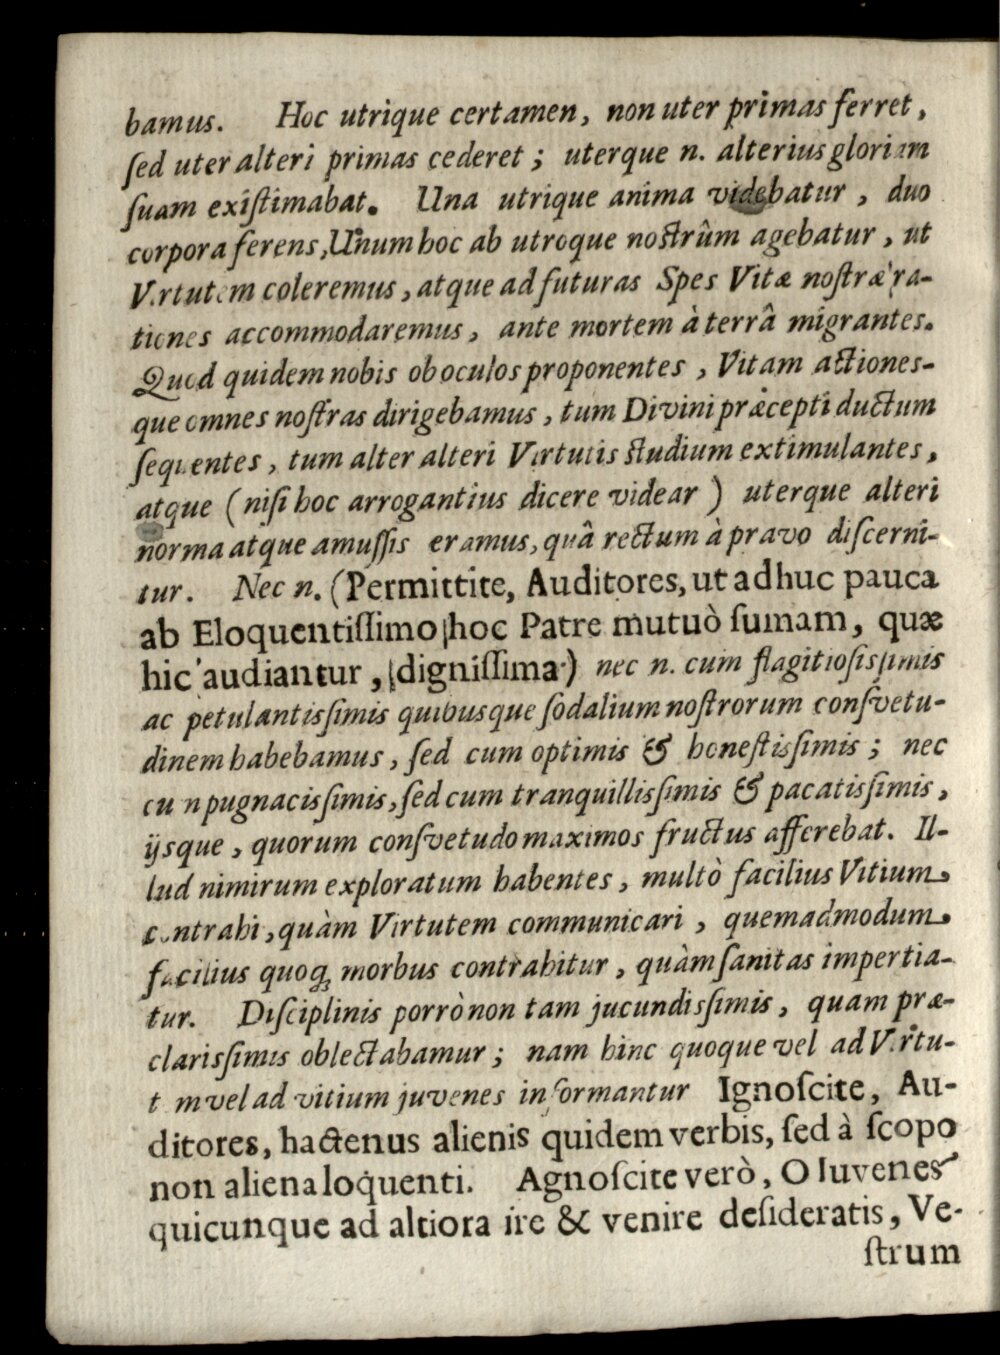 bamus. Hoc utrique certamen, non uter primas ferret,
ſed uter alteri primas cederet; uterque n. alterius gloriam
ſuam exiſtimabat. Una utrique anima videbatur, duo
corpora ferens, Unum hoc ab utroque noſtrûm agebatur, ut
Virtutem coleremus, atque ad futuras Spes Vitæ noſtræ ra-
tiones accommodaremus, ante mortem à terrâ migrantes.
Quod quidem nobis ob oculos proponentes, Vitam actiones-
que omnes noſtras dirigebamus, tum Divini præcepti ductum
ſequentes, tum alter alteri Virtutis ſtudium extimulantes,
atque (niſi hoc arrogantius dicere videar) uterque alteri
norma atque amuſſis eramus, quâ rectum à pravo diſcerni-
tur. Nec n. (Permittite, Auditores, ut adhuc pauca
ab Eloquentiſſimo hoc Patre mutuò ſumam, quæ
hic audiantur, digniſſima) nec n. cum flagitioſisſimis
ac petulantisſimis quibusque ſodalium noſtrorum conſvetu-
dinem habebamus, ſed cum optimis & honeſtisſimis; nec
cum pugnacisſimis, ſed cum tranquillisſimis & pacatisſimis,
ijsque, quorum conſvetudo maximos fructus afferebat. Il-
lud nimirum exploratum habentes, multò facilius Vitium
contrahi, quàm Virtutem communicari, quemadmodum
facilius quoq; morbus contrahitur, quàm ſanitas impertia-
tur. Diſciplinis porrò non tam jucundisſimis, quam præ-
clarisſimis oblectabamur; nam hinc quoque vel ad Virtu-
tem vel ad vitium juvenes informantur Ignoſcite, Au-
ditores, hactenus alienis quidem verbis, ſed à ſcopo
non aliena loquenti. Agnoſcite verò, O Iuvenes
quicunque ad altiora ire & venire deſideratis, Ve-
ſtrum